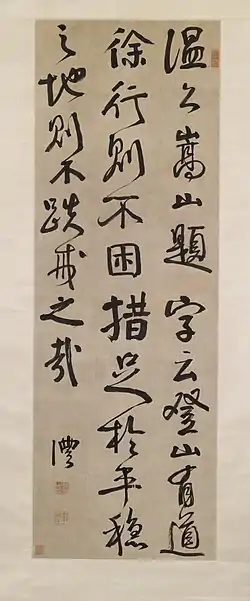 温公嵩山題字云登山有道
徐行則不困措足於平穩
之地則不跌戒之哉
澧